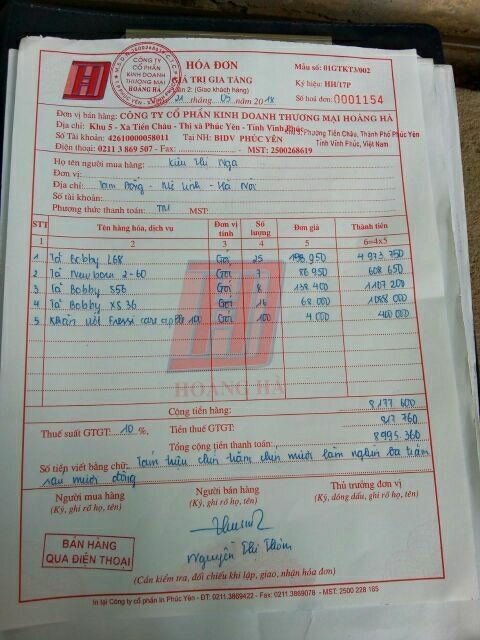 HÓA ĐƠN
GIÁ TRỊ GIA TĂNG
Liên 2: (Giao khách hàng)
21 tháng 05 năm 2018
Mẫu số: 01GTKT3/002
Ký hiệu: HH/17P
Số hoá đơn: 0001154
CÔNG TY
CỔ PHẦN
KINH DOANH
THƯƠNG MẠI
HOÀNG HÀ
Đơn vị bán hàng: CÔNG TY CỔ PHẦN KINH DOANH THƯƠNG MẠI HOÀNG HÀ
Địa chỉ: Khu 5 - Xã Tiền Châu - Thị xã Phúc Yên - Tỉnh Vĩnh Phúc
Phường Tiền Châu, Thành Phố Phúc Yên
Tỉnh Vĩnh Phúc, Việt Nam
Số Tài khoản: 42610000058011 Tại NH: BIDV PHÚC YÊN
Điện thoại: 0211 3 869 507 - Fax: - MST: 2500268619
Họ tên người mua hàng: Kiều Thị Nga
Đơn vị:
Địa chỉ: Tam Đồng - Mê Linh - Hà Nội
Số tài khoản:
Phương thức thanh toán: TM MST:
STT Tên hàng hóa, dịch vụ Đơn vị tính Số lượng Đơn giá Thành tiền
1 2 3 4 5 6=4x5
1 Tã Bobby L68 Gói 25 198 950 4 973 750
2 Tã Newborn 2-60 Gói 7 86 950 608 650
3 Tã Bobby S56 Gói 8 138 400 1107 200
4 Tã Bobby XS 36 Gói 16 68 000 1088 000
5 Khăn ướt care 100 Gói 100 4 000 400 000
HOANG HA
Cộng tiền hàng: 8 177 600
Thuế suất GTGT: 10 %, Tiền thuế GTGT: 817 760
Tổng cộng tiền thanh toán: 8 995.360
Số tiền viết bằng chữ: Tám triệu chín trăm chín mươi lăm nghìn ba trăm
sáu mươi đồng
Người mua hàng Người bán hàng Thủ trưởng đơn vị
(Ký, ghi rõ họ, tên) (Ký, ghi rõ họ, tên) (Ký, đóng dấu, ghi rõ họ, tên)
BÁN HÀNG
QUA ĐIỆN THOẠI
Nguyễn Thị
(Cần kiểm tra, đối chiếu khi lập, giao, nhận hóa đơn)
In tại Công ty cổ phần In Phúc Yên - ĐT: 0211.3869422 - Fax: 0211.3869078 - MST: 2500 228 165